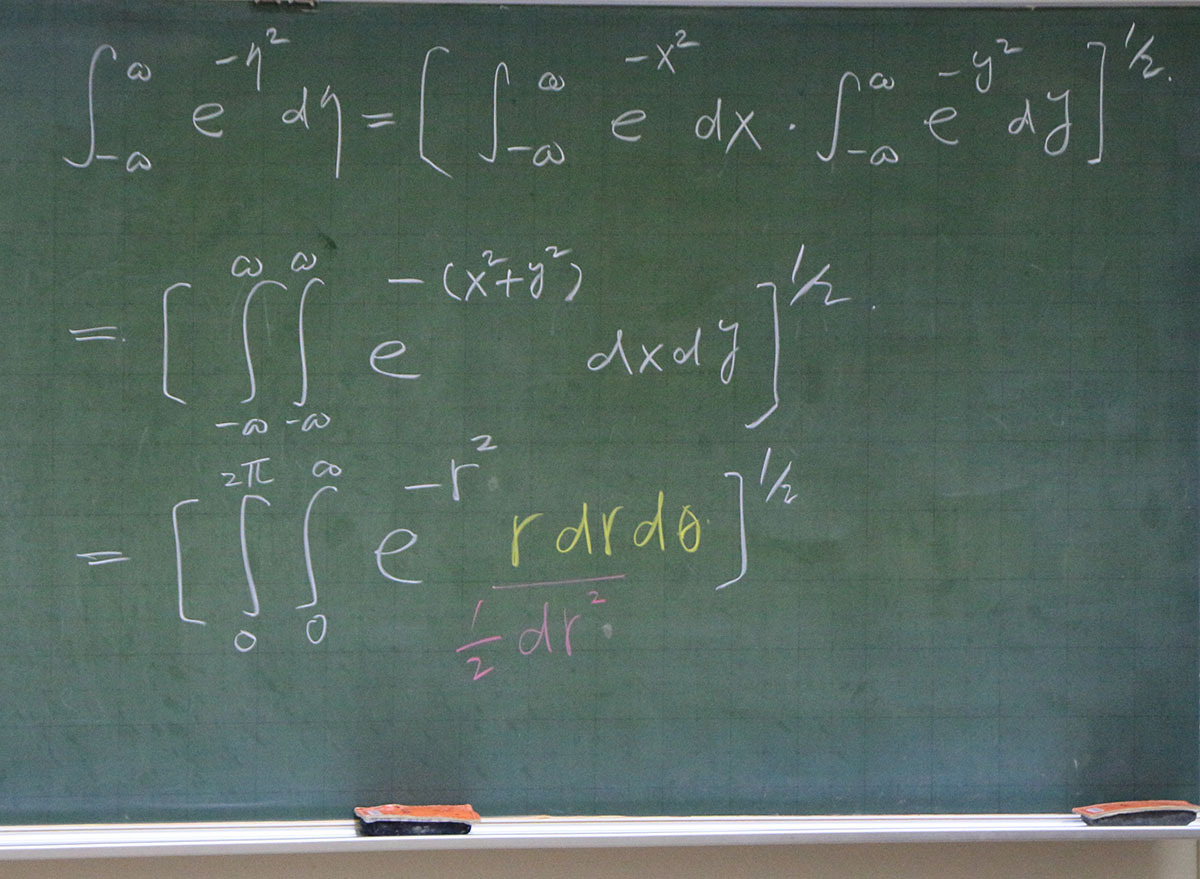 ∫_{-∞}^{∞} e^{-η²} dη = [ ∫_{-∞}^{∞} e^{-x²} dx · ∫_{-∞}^{∞} e^{-y²} dy ]^{1/2}.
= [ ∫_{-∞}^{∞} ∫_{-∞}^{∞} e^{-(x²+y²)} dxdy ]^{1/2}.
= [ ∫_{0}^{2π} ∫_{0}^{∞} e^{-r²} r dr dθ ]^{1/2}
1/2 dr²